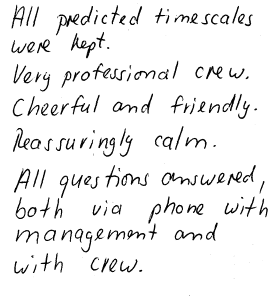 All predicted timescales
were kept.
Very professional crew.
Cheerful and friendly.
Reassuringly calm.
All questions answered,
both via phone with
management and
with crew.